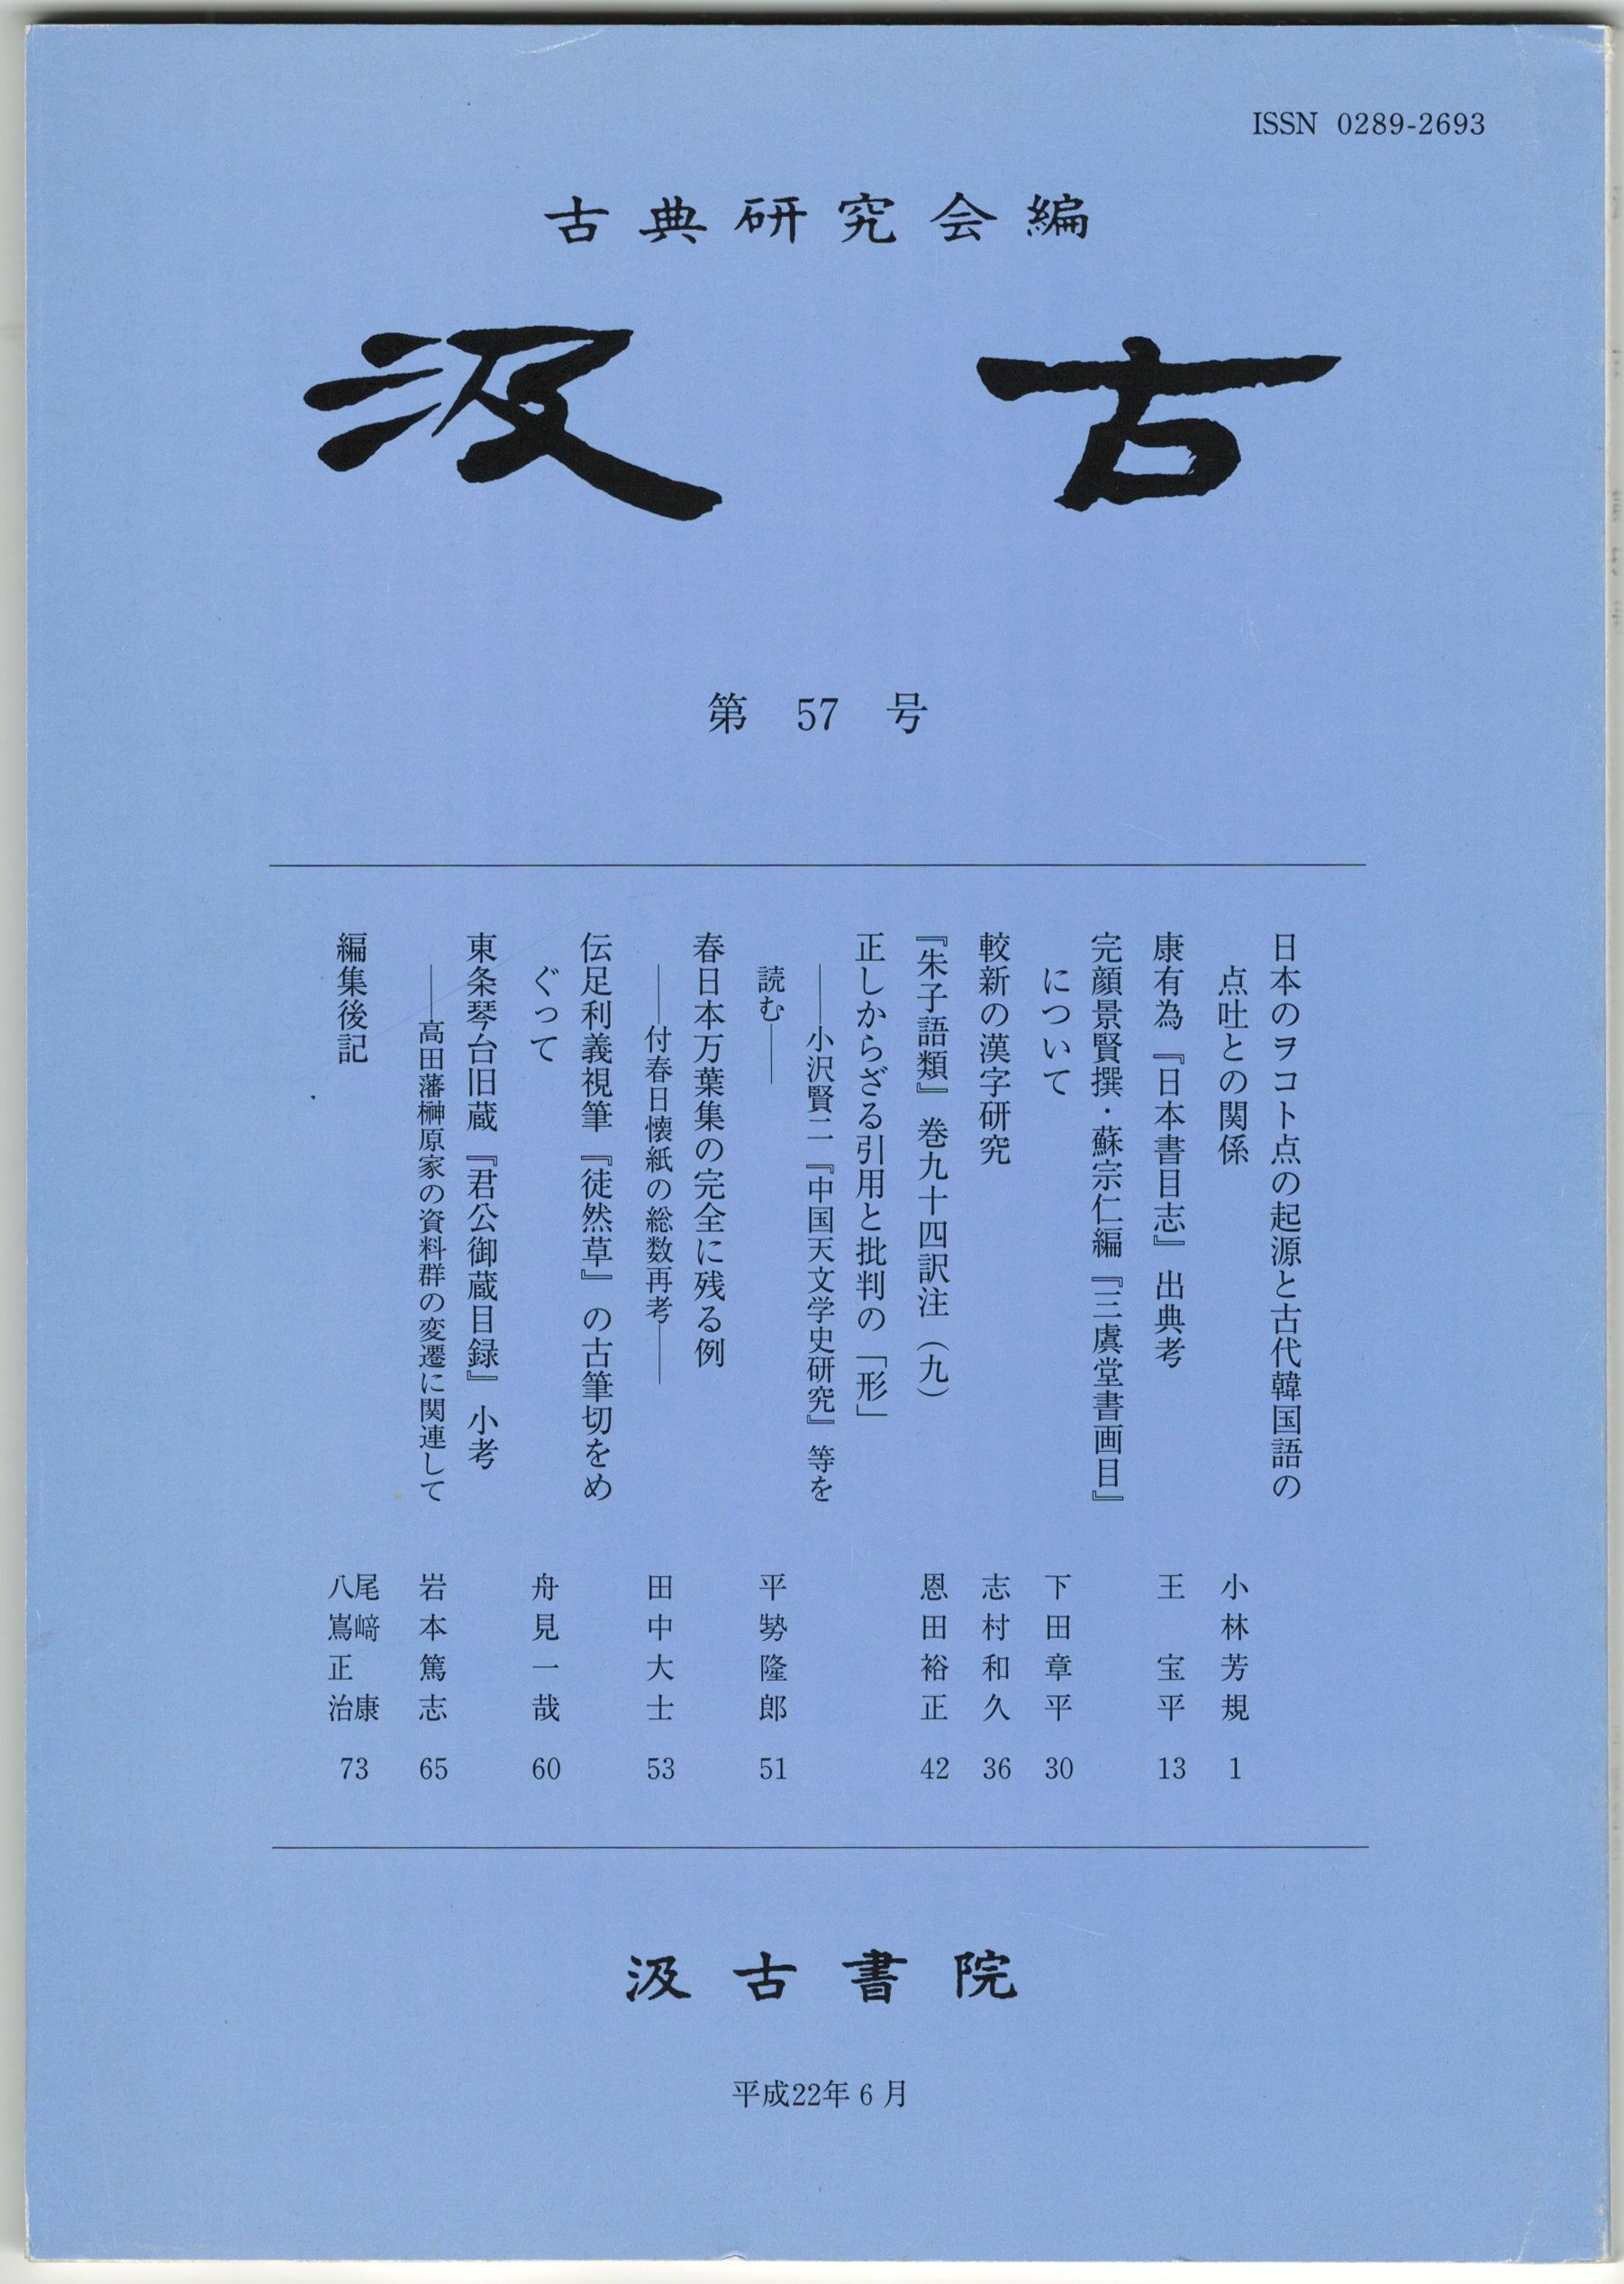 ISSN 0289-2693
古典研究会編
汲古
第 57 号
日本のヲコト点の起源と古代韓国語の
点吐との関係
小林芳規 1
康有為『日本書目志』出典考
王 宝平 13
完顔景賢撰・蘇宗仁編『三虞堂書画目』
について
下田章平 30
較新の漢字研究
志村和久 36
『朱子語類』巻九十四訳注（九）
恩田裕正 42
正しからざる引用と批判の「形」
――小沢賢二『中国天文学史研究』等を
読む――
平㔟隆郎 51
春日本万葉集の完全に残る例
――付春日懐紙の総数再考――
田中大士 53
伝足利義視筆『徒然草』の古筆切をめ
ぐって
舟見一哉 60
東条琴台旧蔵『君公御蔵目録』小考
――高田藩榊原家の資料群の変遷に関連して
岩本篤志 65
編集後記
尾﨑 康
八嶌正治 73
汲古書院
平成22年6月